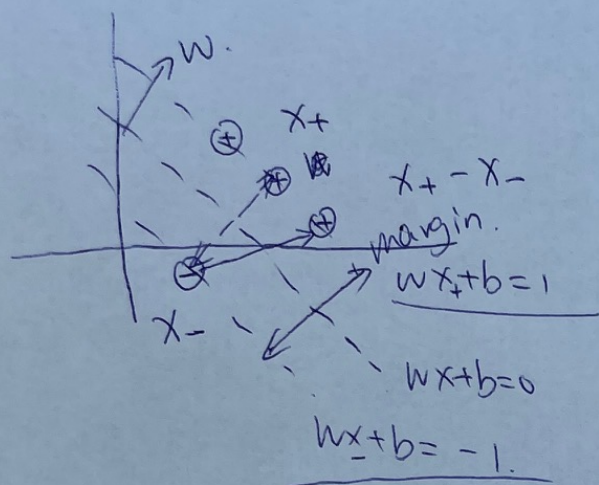 w.
+
x+
+
x+ - x-
+
margin.
wx++b=1
-
x-
wx+b=0
wx-+b= -1.